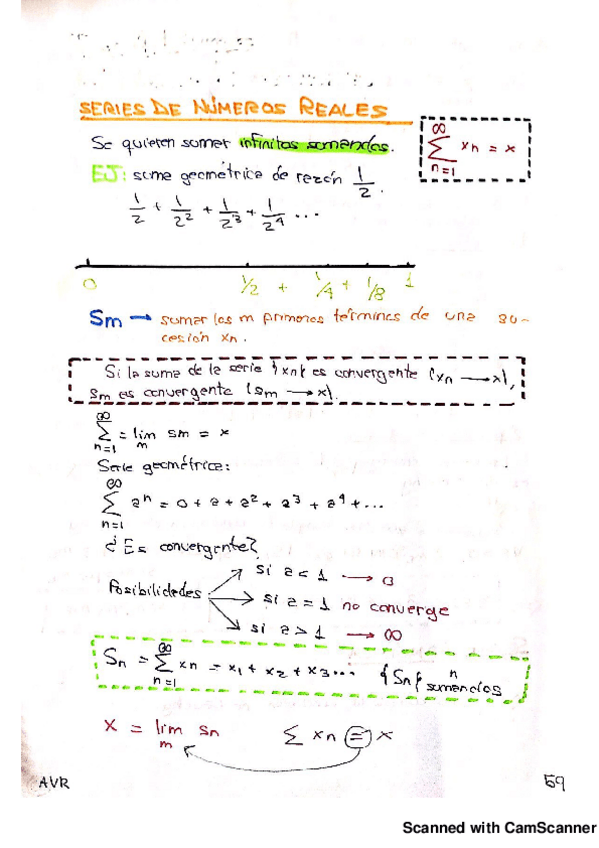 SERIES DE NÚMEROS REALES
Se quieren sumar infinitos sumandos.
∞
∑ xn = x
n=1
EJ: suma geométrica de razón 1/2.
1/2 + 1/2² + 1/2³ + 1/2⁴ ...
0 1/2 + 1/4 + 1/8 1
Sm → sumar los m primeros términos de una su-
cesión xn.
Si la suma de la serie {xn} es convergente (xn → x),
Sm es convergente (Sm → x).
∞
∑ = lim sm = x
n=1 m
Serie geométrica:
∞
∑ aⁿ = 0 + a + a² + a³ + a⁴ + ...
n=1
¿Es convergente?
Posibilidades
si a < 1 → 0
si a = 1 no converge
si a > 1 → ∞
∞
Sn = ∑ xn = x1 + x2 + x3... {Sn} n sumandos
n=1
X = lim sn
m
∑ xn = x
AVR
59
Scanned with CamScanner